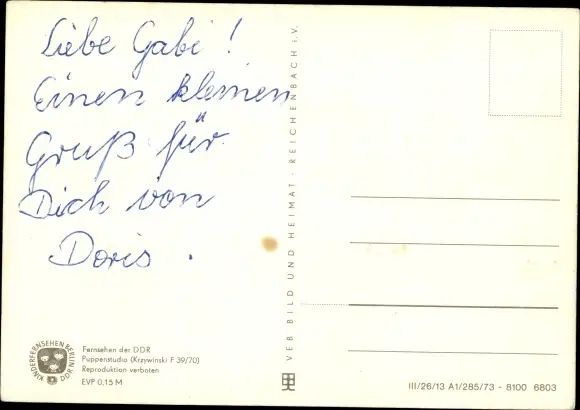 Liebe Gabi!
Einen kleinen
Gruß für
Dich von
Doris.
VEB BILD UND HEIMAT · REICHENBACH i.V.
KINDERFERNSEHEN BERLIN
DDR
Fernsehen der DDR
Puppenstudio (Krzywinski F 39/70)
Reproduktion verboten
EVP 0,15 M
III/26/13 A1/285/73 - 8100 6803